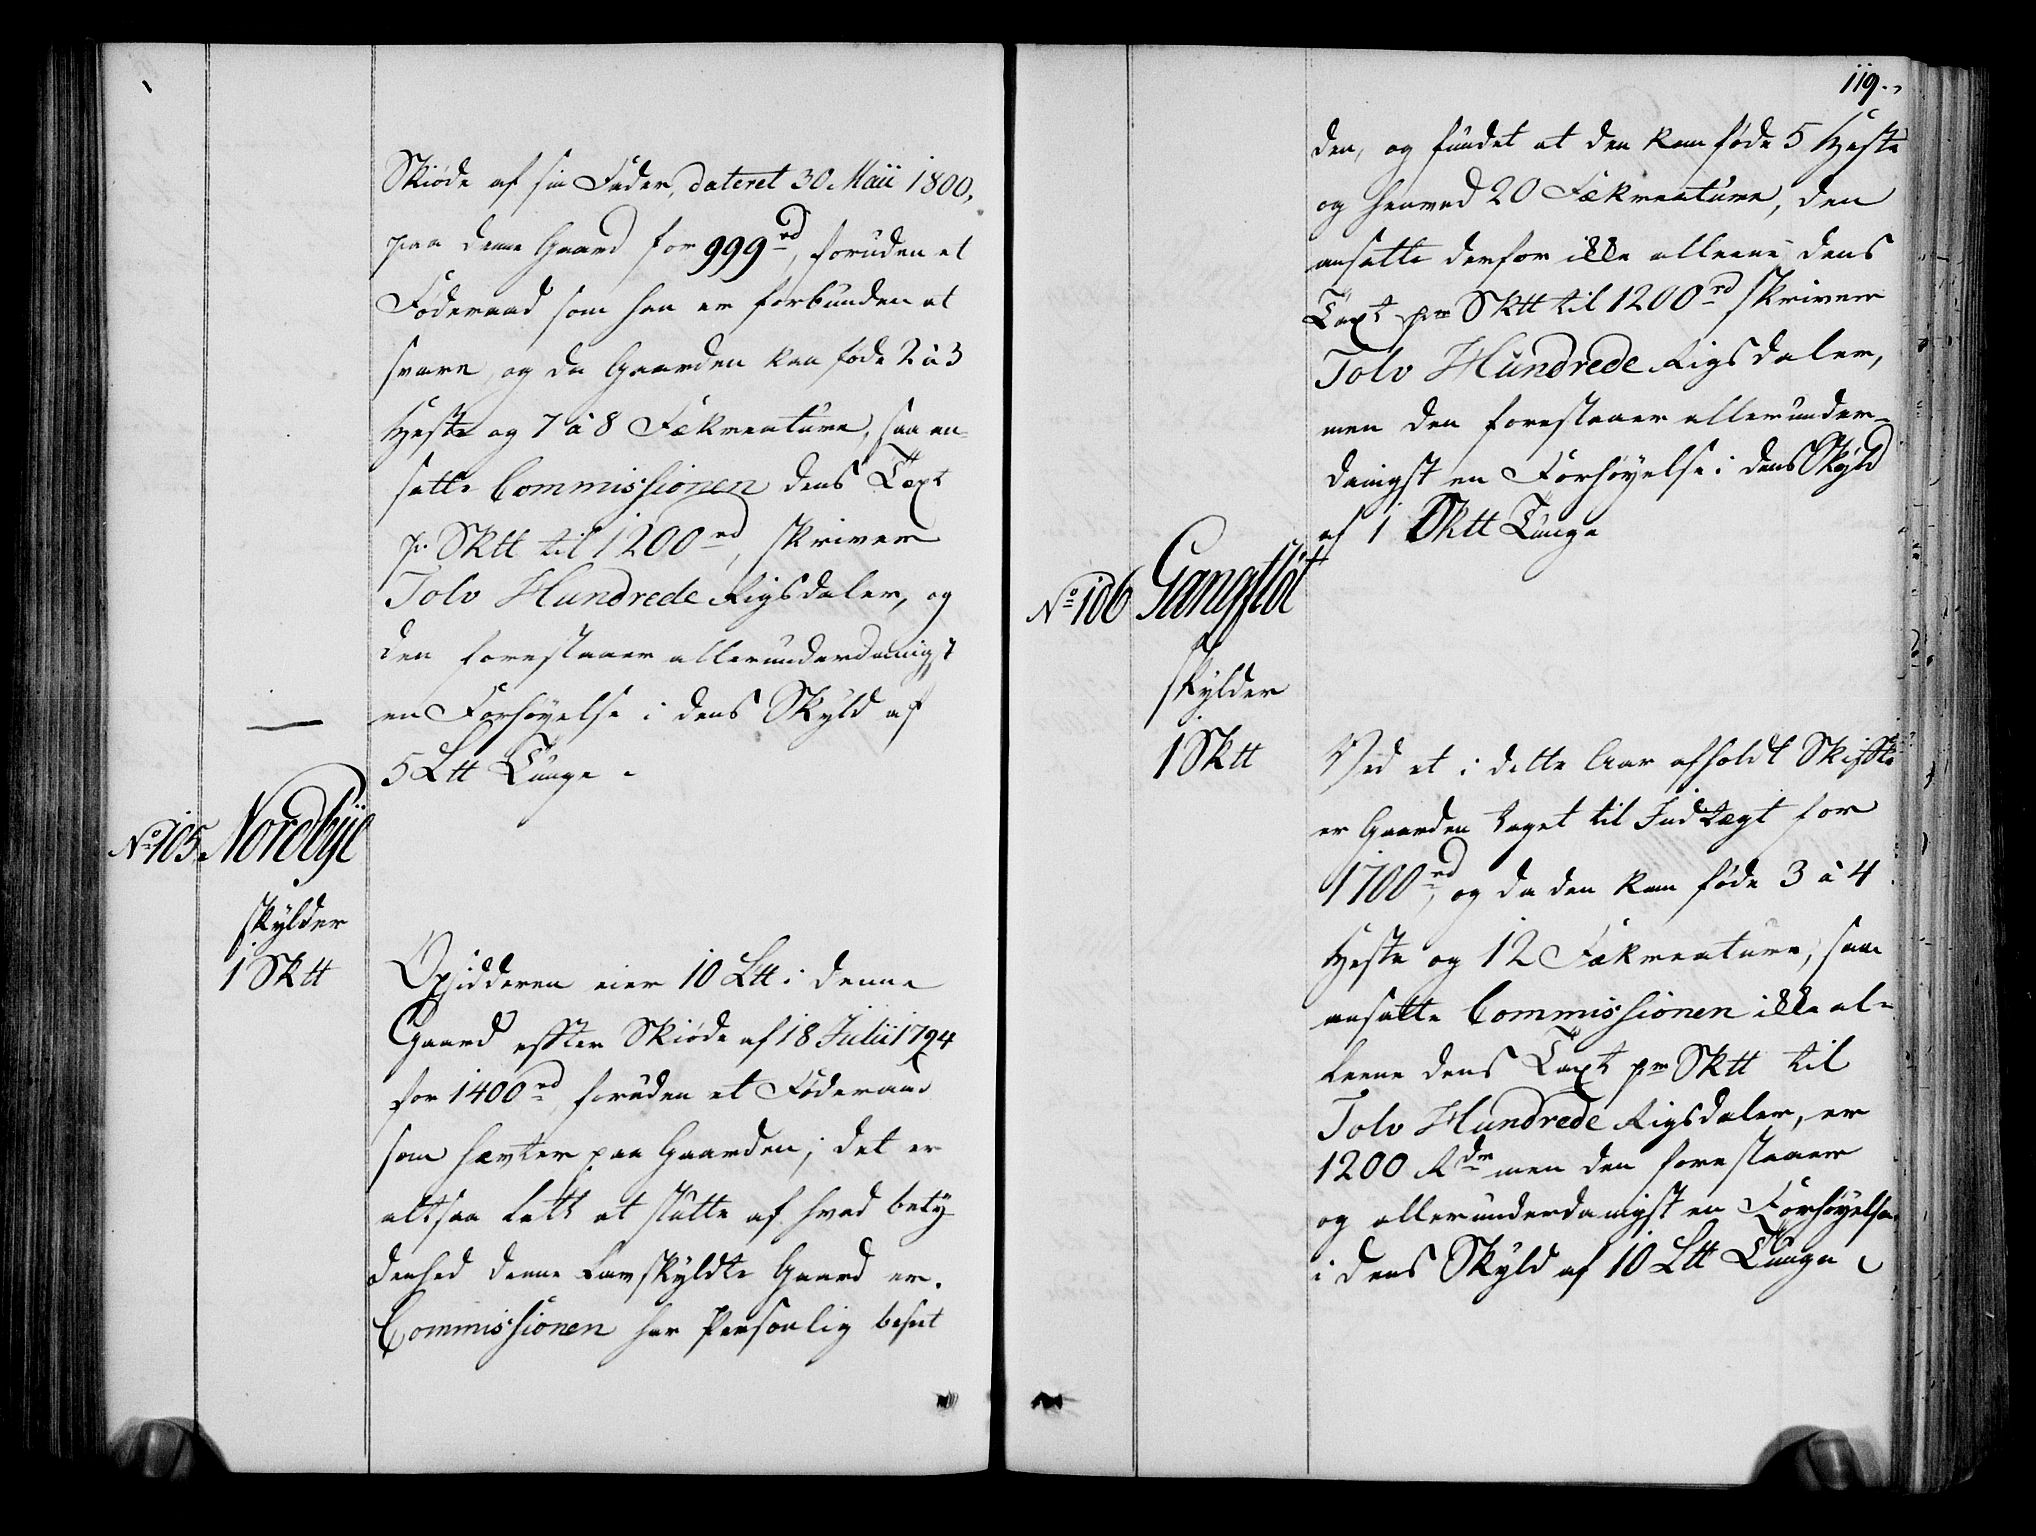 Skiøde af sin Fader, dateret 30 Maii 1800,
paa denne Gaard for 999 rd, foruden et
Føderaad som han er forbunden at
svare, og da Gaarden kan føde 2 à 3
Heste og 7 à 8 Fækreature, saa an-
satte Commissionen dens Taxt
pr Sktt til 1200 rd, skriver
Tolv Hundrede Rigsdaler, og
den forestaaer allerunderdanigst
en Forhøyelse i dens Skyld af
5 Ltt Tunge.
No 105. Nordbÿe
skylder
1 Sktt
Opsidderen eier 10 Ltt i denne
Gaard effter Skiøde af 18 Julii 1794
for 1400 rd, foruden et Føderaad
som hæfter paa Gaarden; det er
altsaa lett at slutte af hvad bety-
denhed denne Lavskyldte Gaard er.
Commissionen har Personlig beseet
119.
den, og fundet at den kan føde 5 Heste
og henved 20 Fækreature, den
ansatte derfor ikke alleene dens
Taxt pr Sktt til 1200 rd skriver
Tolv Hundrede Rigsdaler,
men den forestaaer allerunder-
danigst en Forhøyelse i dens Skyld
af 1 Sktt Tunge
No 106 Gangfløt
skylder
1 Sktt
Ved et i dette Aar afholdt Skiffte
er Gaarden taget til Indtægt for
1700 rd, og da den kan føde 3 à 4
Heste og 12 Fækreature, saa
ansatte Commissionen ikke al-
leene dens Taxt pr Sktt til
Tolv Hundrede Rigsdaler, er
1200 Rdr men den forestaaer
og allerunderdanigst en Forhøyelse
i dens Skyld af 10 Ltt Tunge